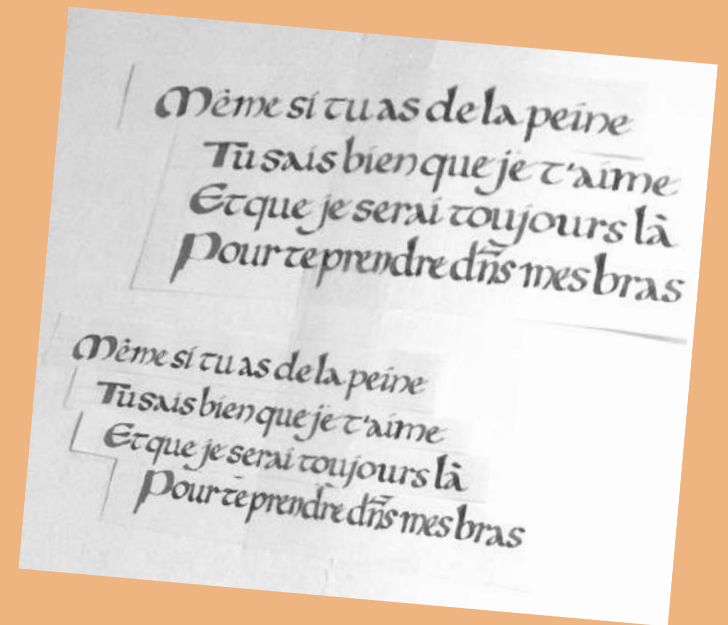 Même si tu as de la peine
Tu sais bien que je t'aime
Et que je serai toujours là
Pour te prendre dñs mes bras
Même si tu as de la peine
Tu sais bien que je t'aime
Et que je serai toujours là
Pour te prendre dñs mes bras